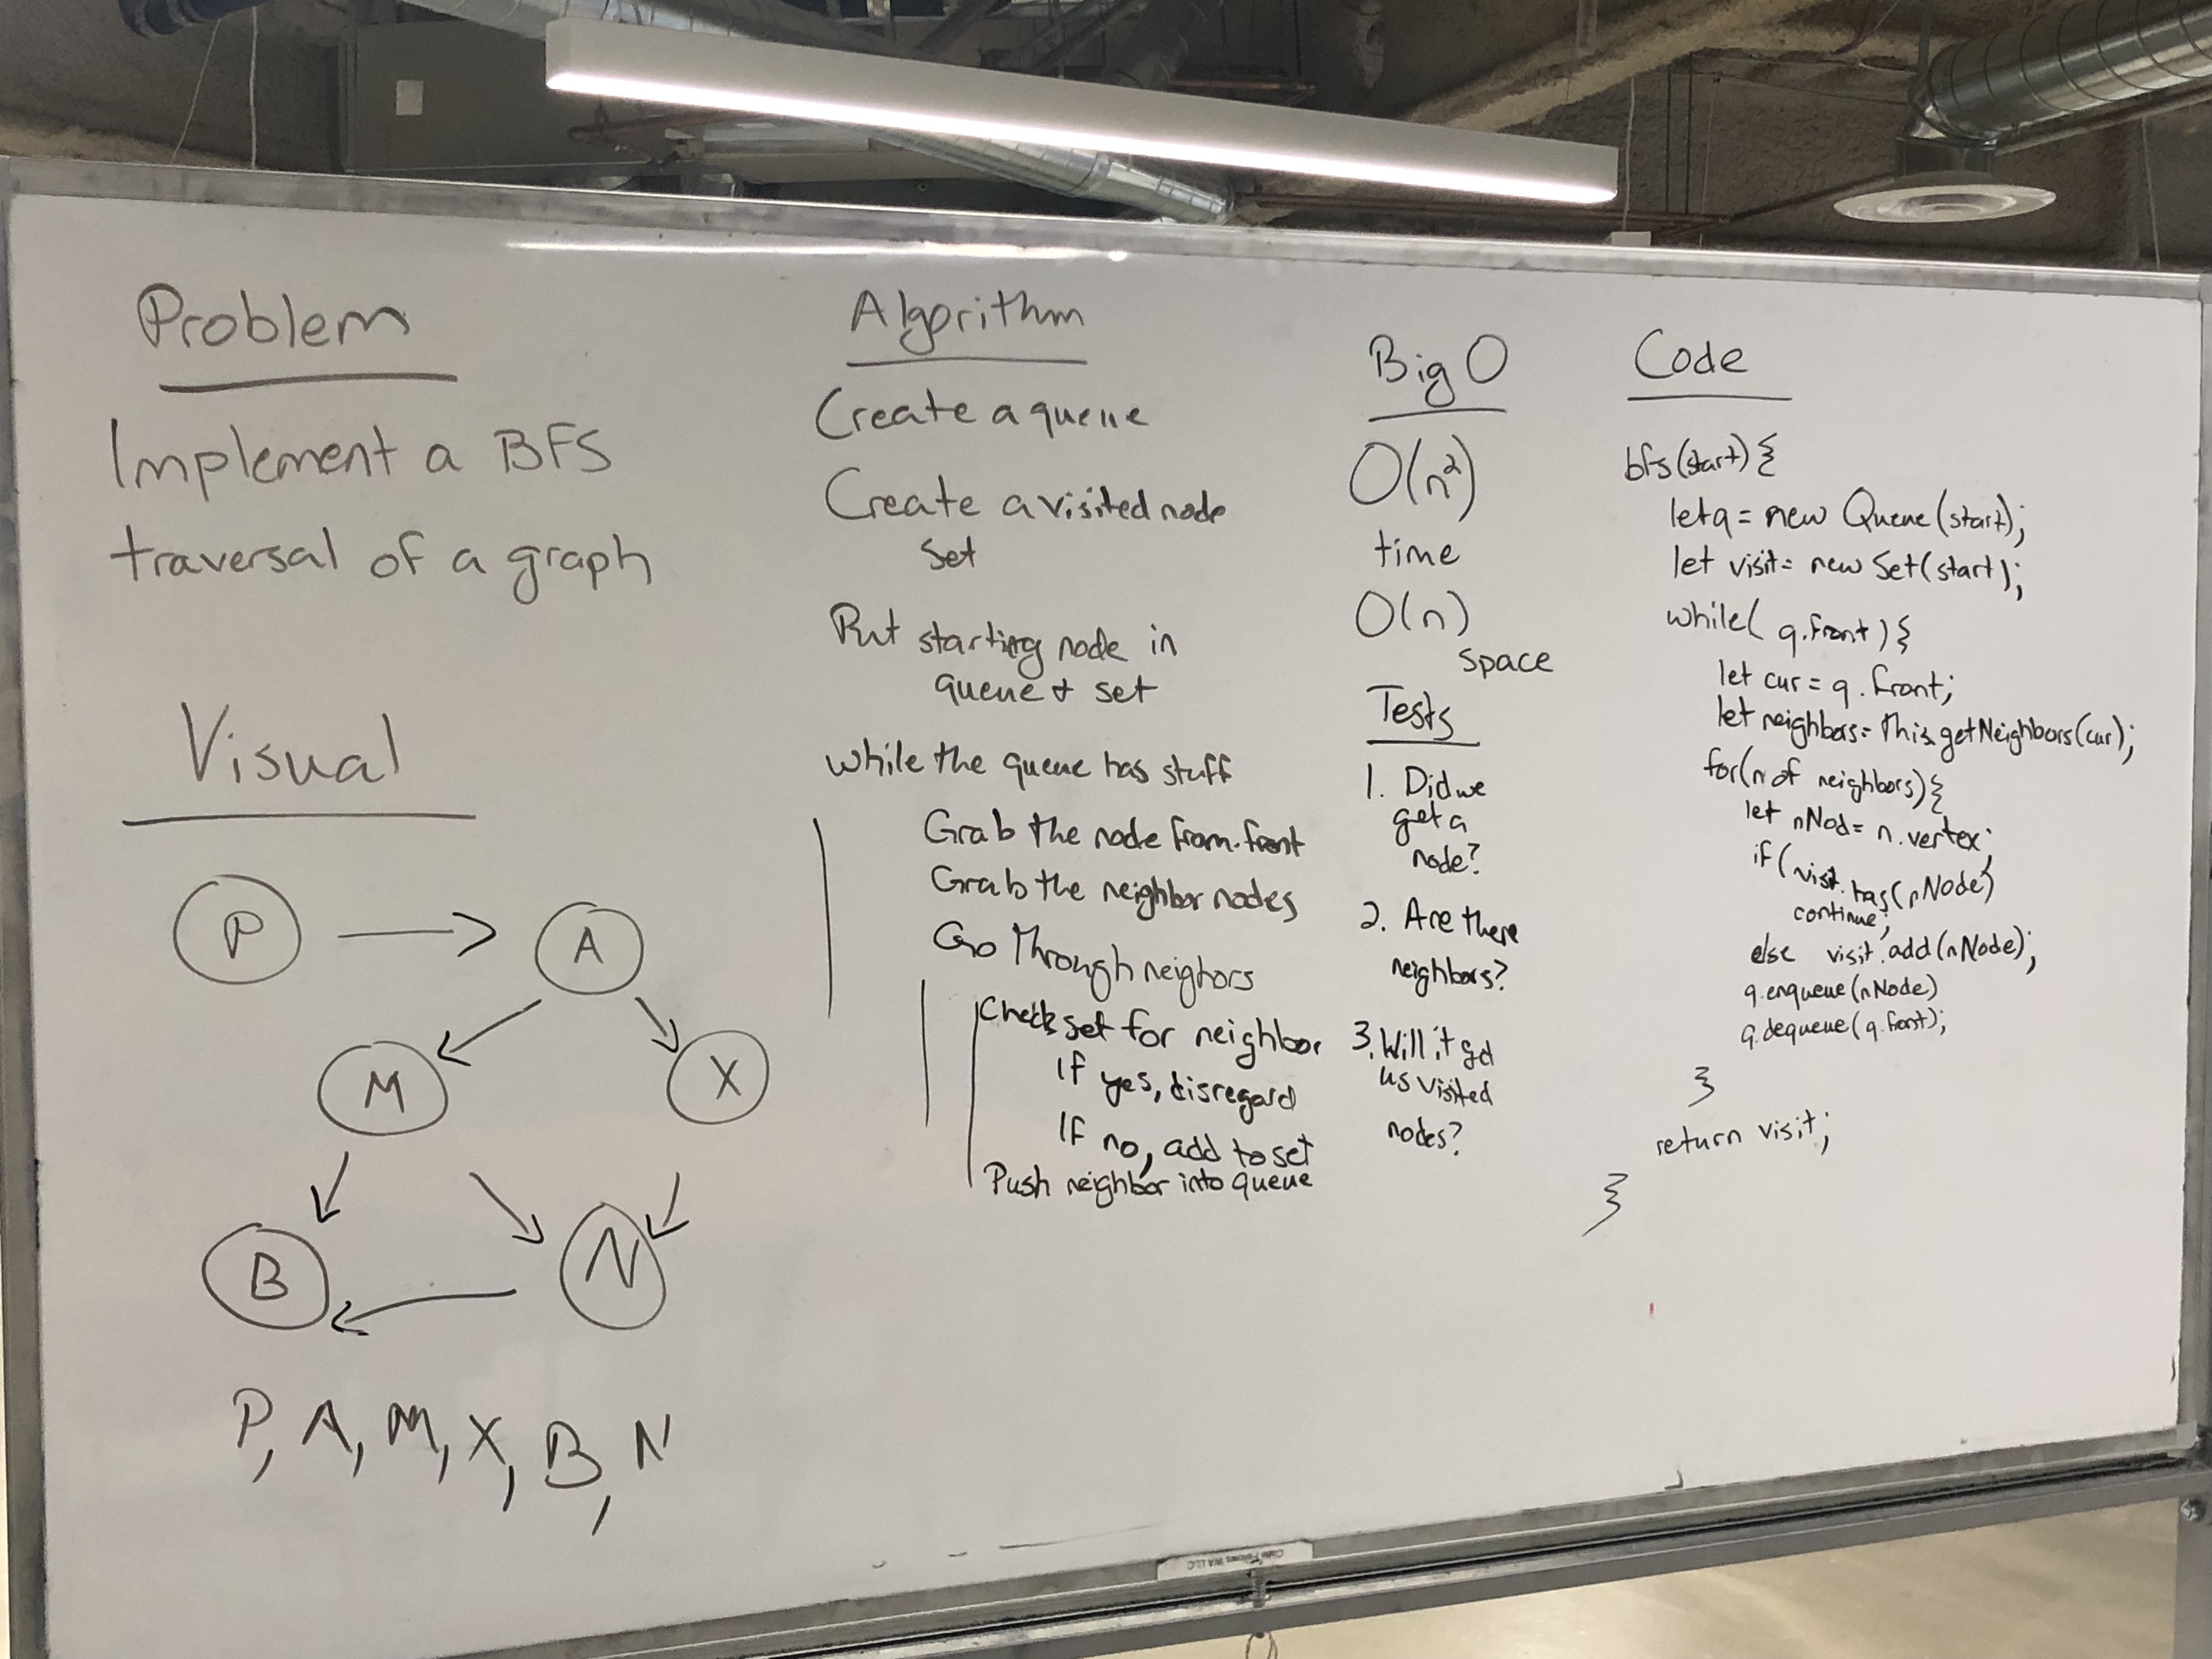 Problem
Implement a BFS
traversal of a graph
Visual
P
A
M
X
B
N
P, A, M, X, B, N
Algorithm
Create a queue
Create a visited node
set
Put starting node in
queue + set
while the queue has stuff
Grab the node from front
Grab the neighbor nodes
Go through neighors
Check set for neighbor
If yes, disregard
If no, add to set
Push neighbor into queue
Big O
O(n²)
time
O(n)
space
Tests
1. Did we
get a
node?
2. Are there
neighbors?
3. Will it get
us visited
nodes?
Code
bfs(start){
let q = new Queue(start);
let visit = new Set(start);
while( q.front){
let cur = q.front;
let neighbors = this.getNeighbors(cur);
for(n of neighbors){
let nNod = n.vertex;
if(visit.has(nNode)
continue;
else visit.add(nNode);
q.enqueue(nNode)
q.dequeue(q.front);
}
return visit;
}